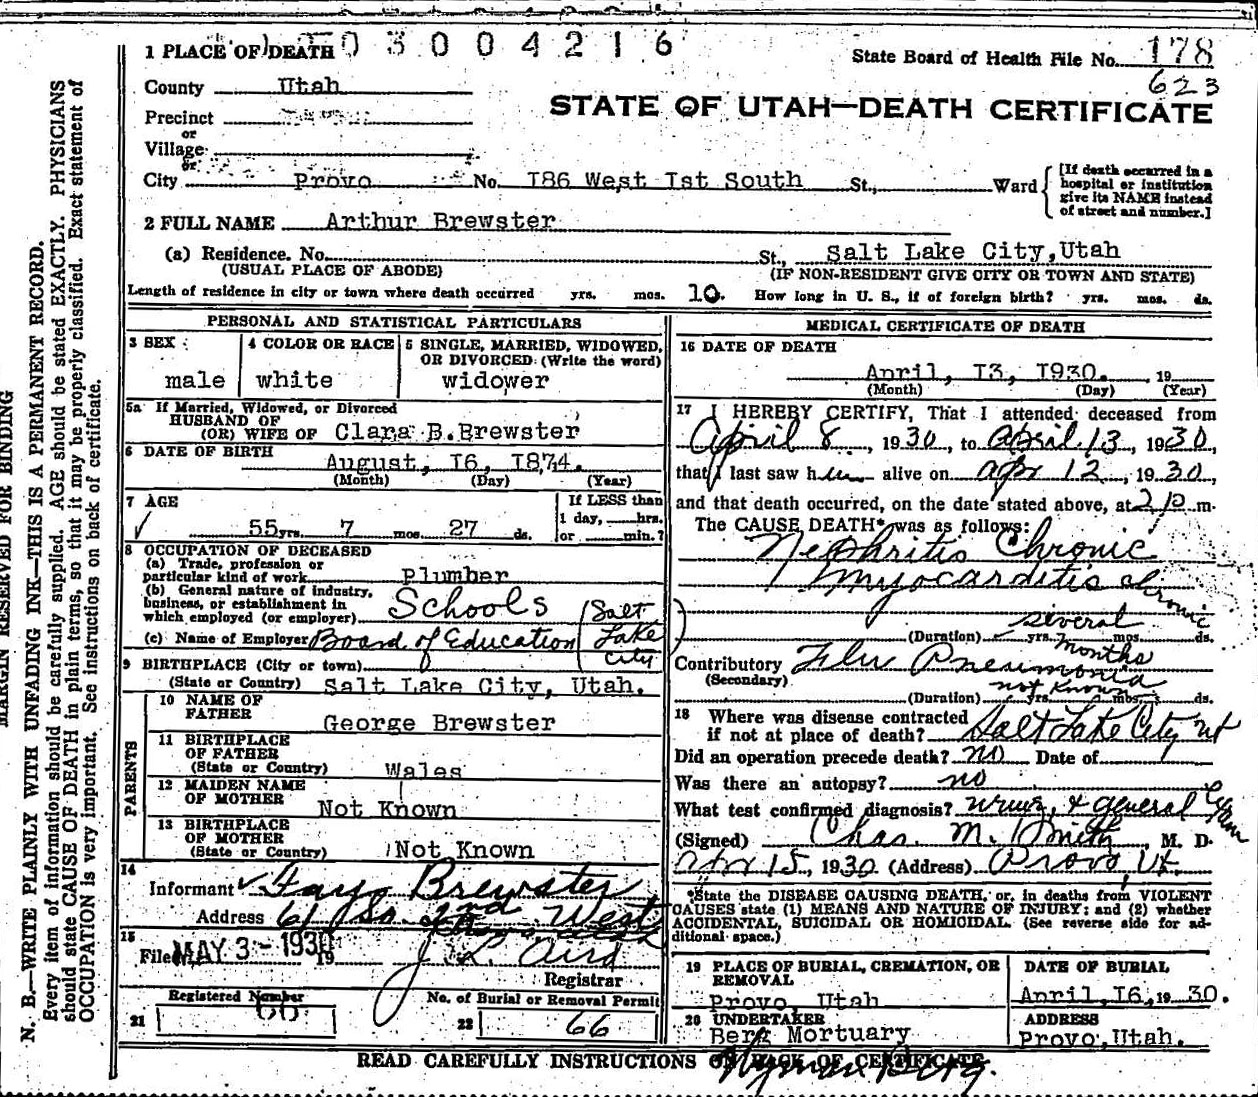 MARGIN RESERVED FOR BINDING
N. B.—WRITE PLAINLY WITH UNFADING INK—THIS IS A PERMANENT RECORD.
Every item of information should be carefully supplied. AGE should be stated EXACTLY. PHYSICIANS
should state CAUSE OF DEATH in plain terms, so that it may be properly classified. Exact statement of
OCCUPATION is very important. See instructions on back of certificate.
1 PLACE OF DEATH 03004216
State Board of Health File No. 178
623
County Utah
STATE OF UTAH—DEATH CERTIFICATE
Precinct
or
Village
or
City Provo No. I86 West Ist South St., Ward
[If death occurred in a
hospital or institution
give its NAME instead
of street and number.]
2 FULL NAME Arthur Brewster
(a) Residence. No. St., Salt Lake City,Utah
(USUAL PLACE OF ABODE) (IF NON-RESIDENT GIVE CITY OR TOWN AND STATE)
Length of residence in city or town where death occurred yrs. mos. 10. How long in U. S., if of foreign birth? yrs. mos. ds.
PERSONAL AND STATISTICAL PARTICULARS
3 SEX 4 COLOR OR RACE 5 SINGLE, MARRIED, WIDOWED,
OR DIVORCED (Write the word)
male white widower
5a If Married, Widowed, or Divorced
HUSBAND OF
(OR) WIFE OF Clara B.Brewster
6 DATE OF BIRTH
August, I6, I874.
(Month) (Day) (Year)
7 AGE If LESS than
1 day, hrs.
55 yrs. 7 mos. 27 ds. or min.?
8 OCCUPATION OF DECEASED
(a) Trade, profession or
particular kind of work Plumber
(b) General nature of industry,
business, or establishment in
which employed (or employer) Schools
(c) Name of Employer Board of Education (Salt Lake City)
9 BIRTHPLACE (City or town)
(State or Country) Salt Lake City, Utah.
PARENTS
10 NAME OF
FATHER George Brewster
11 BIRTHPLACE
OF FATHER
(State or Country) Wales
12 MAIDEN NAME
OF MOTHER Not Known
13 BIRTHPLACE
OF MOTHER
(State or Country) Not Known
14
Informant Faye Brewster
Address 61 So. 2nd West
Provo Utah
15
Filed MAY 3 - 1930 19 J. R. Aird
Registrar
Registered Number
21 66
No. of Burial or Removal Permit
22 66
MEDICAL CERTIFICATE OF DEATH
16 DATE OF DEATH
April, I3, I930. , 19
(Month) (Day) (Year)
17 I HEREBY CERTIFY, That I attended deceased from
April 8, 1930, to April 13, 1930,
that I last saw him alive on Apr 12, 1930,
and that death occurred, on the date stated above, at 2 P. m.
The CAUSE DEATH* was as follows:
Nephritis Chronic
Myocarditis Chronic
several
(Duration) yrs. mos. ds.
months
Contributory Flu Pneumonia
(Secondary)
not known
(Duration) yrs. mos. ds.
18 Where was disease contracted
if not at place of death? Salt Lake City Ut
Did an operation precede death? no Date of
Was there an autopsy? no
What test confirmed diagnosis? urine, & general Exam
(Signed) Chas. M. Smith, M. D.
Apr 15, 1930 (Address) Provo, Ut.
*State the DISEASE CAUSING DEATH, or, in deaths from VIOLENT
CAUSES state (1) MEANS AND NATURE OF INJURY; and (2) whether
ACCIDENTAL, SUICIDAL OR HOMICIDAL. (See reverse side for ad-
ditional space.)
19 PLACE OF BURIAL, CREMATION, OR
REMOVAL
Provo, Utah
DATE OF BURIAL
April,I6, 19 30.
20 UNDERTAKER
Berg Mortuary
ADDRESS
Provo,Utah.
READ CAREFULLY INSTRUCTIONS ON BACK OF CERTIFICATE
Wyman Berg.